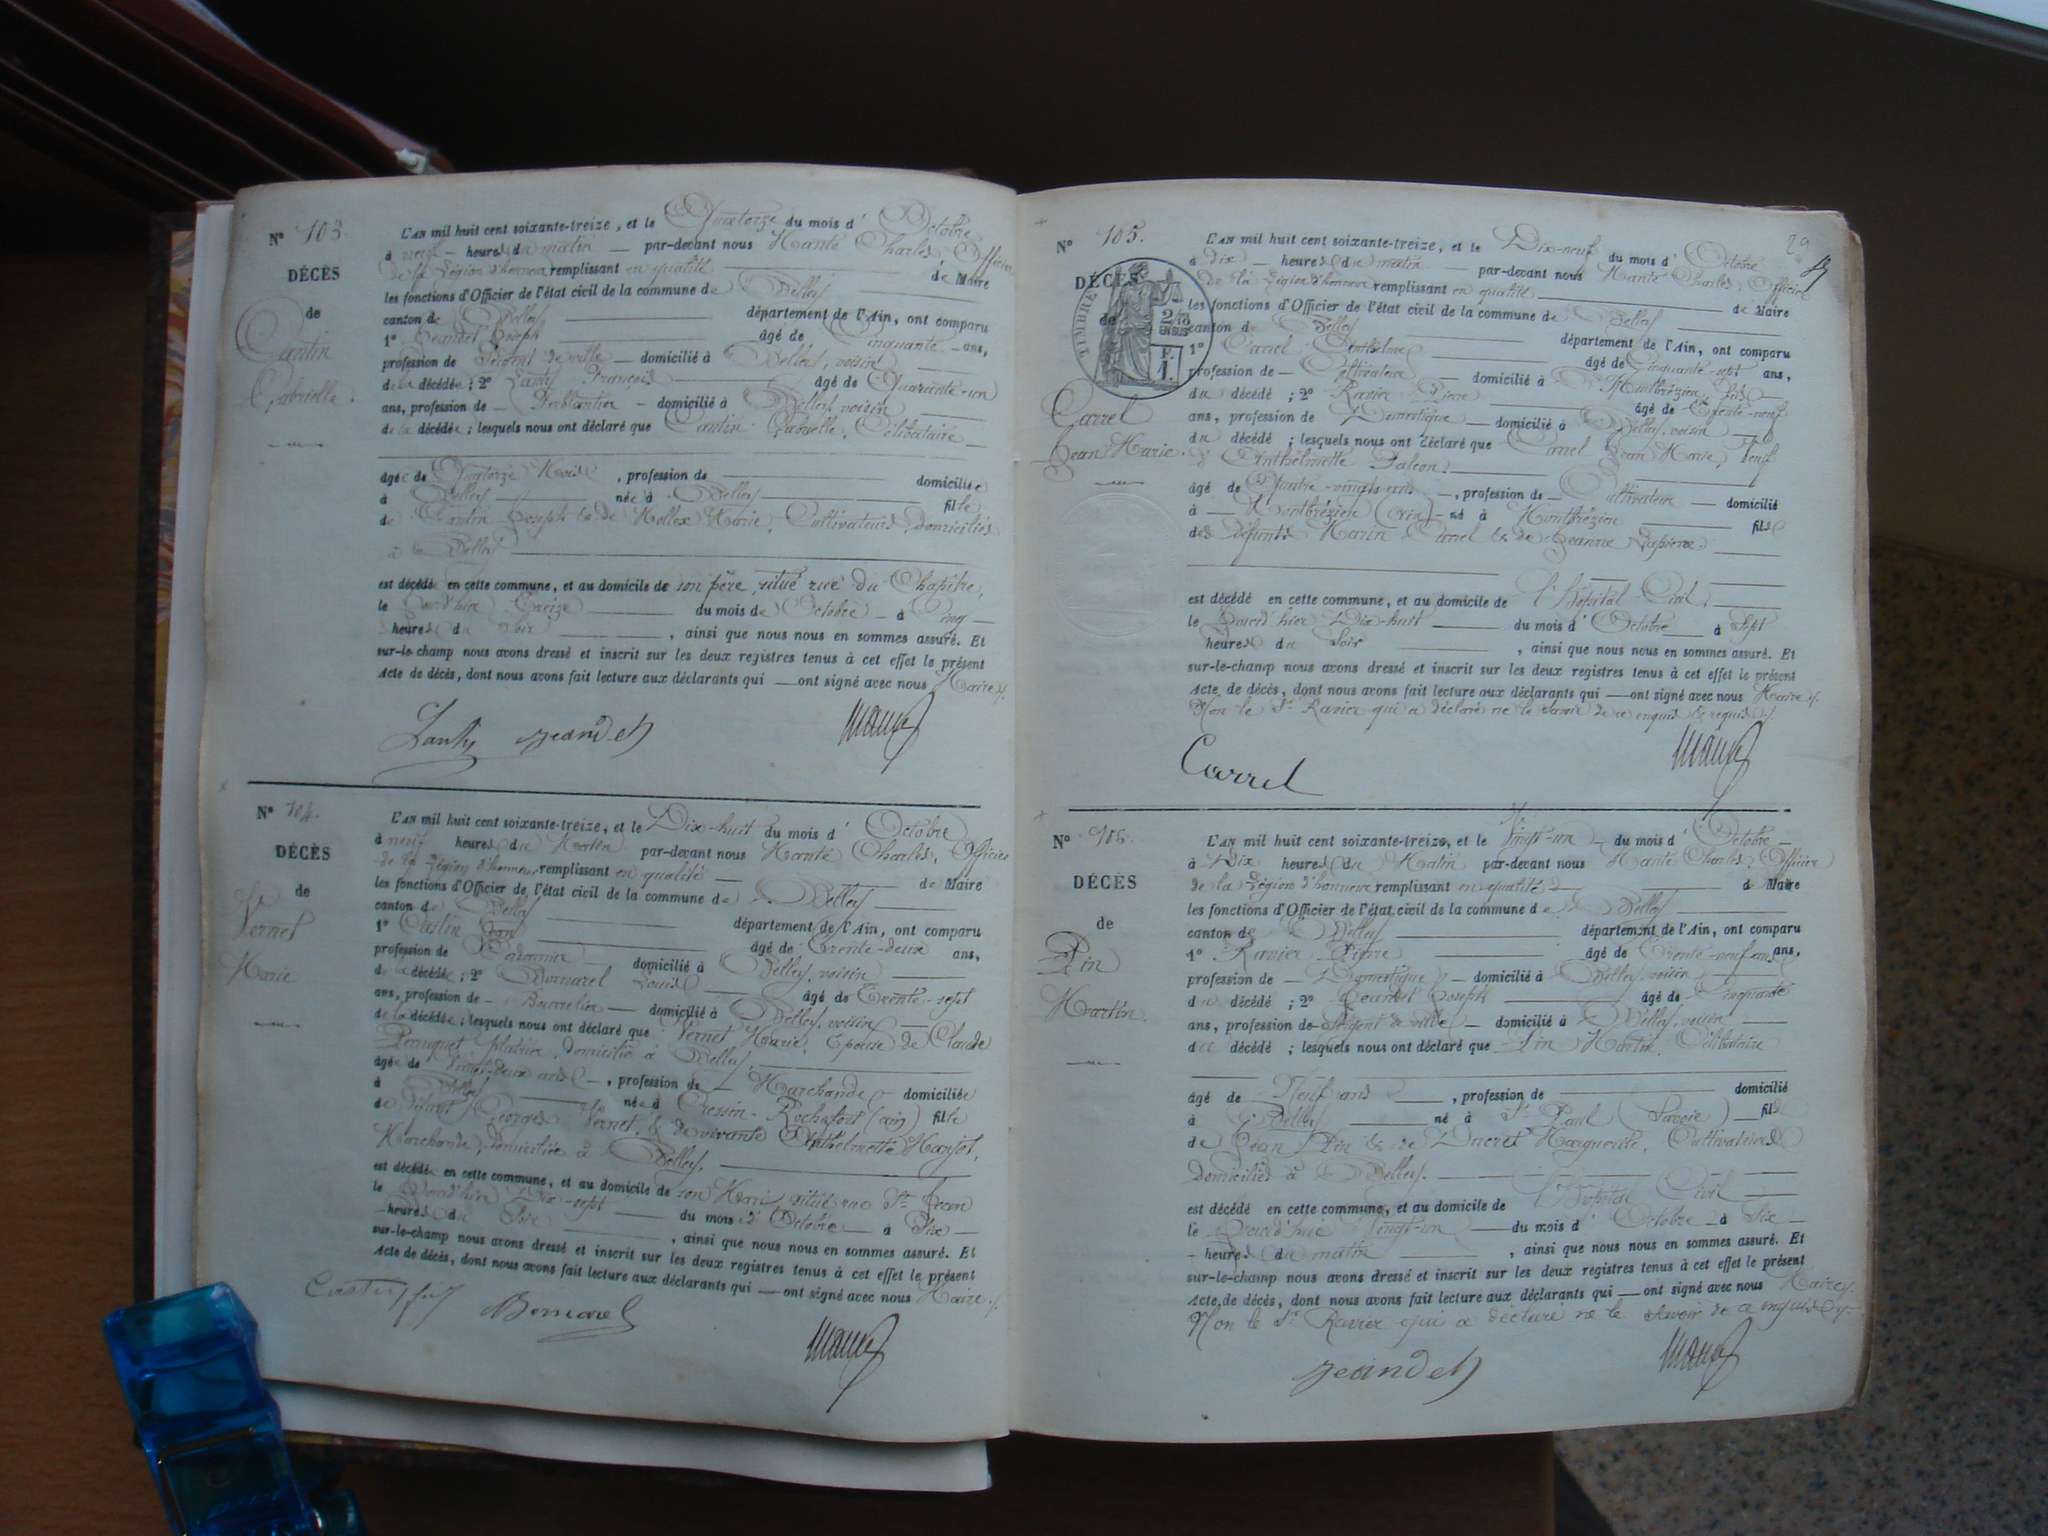 N° 103.
DÉCÈS
de
Cantin
Gabrielle.
L'AN mil huit cent soixante-treize, et le Quatorze du mois d'Octobre
à neuf heures du matin par-devant nous Manté Charles, Officier
de la Légion d'honneur remplissant en qualité de Maire
les fonctions d'Officier de l'état civil de la commune de Belley
canton de Belley département de l'Ain, ont comparu
1° Jeandet Joseph âgé de Cinquante ans,
profession de Sergent de ville domicilié à Belley, voisin
de la décédée ; 2° Lanty François âgé de Quarante-un
ans, profession de Ferblantier domicilié à Belley, voisin
de la décédée ; lesquels nous ont déclaré que Cantin Gabrielle, Célibataire
âgée de Quatorze Mois, profession de domiciliée
à Belley née à Belley fille
de Cantin Joseph & de Mollex Marie, Cultivateurs, domiciliés
à Belley
est décédée en cette commune, et au domicile de son père, situé rue du Chapitre,
le jour d'hier Treize du mois de Octobre à Cinq
heures du Soir, ainsi que nous nous en sommes assuré. Et
sur-le-champ nous avons dressé et inscrit sur les deux registres tenus à cet effet le présent
Acte de décès, dont nous avons fait lecture aux déclarants qui ont signé avec nous Maire ./.
Lanty Jeandet Manté
N° 104.
DÉCÈS
de
Vernet
Marie
L'AN mil huit cent soixante-treize, et le Dix-huit du mois d'Octobre
à neuf heures du Matin par-devant nous Manté Charles, Officier
de la Légion d'honneur remplissant en qualité de Maire
les fonctions d'Officier de l'état civil de la commune de Belley
canton de Belley département de l'Ain, ont comparu
1° Castin Jean âgé de Trente-deux ans,
profession de domicilié à Belley, voisin
de la décédée ; 2° Bornarel Louis âgé de Trente-sept
ans, profession de Bourrelier domicilié à Belley, voisin
de la décédée ; lesquels nous ont déclaré que Vernet Marie, Epouse de Claude
plâtrier, domicilié à Belley,
âgée de Vingt-deux ans, profession de Marchande domiciliée
à Belley née à Cressin-Rochefort (ain) fille
de défunt Georges Vernet, & de vivante Anthelmette
Marchande, domiciliée à Belley,
est décédée en cette commune, et au domicile de son Mari, situé rue St Jean
le jour d'hier Dix-sept du mois d'Octobre à Six
heures du Soir, ainsi que nous nous en sommes assuré. Et
sur-le-champ nous avons dressé et inscrit sur les deux registres tenus à cet effet le présent
Acte de décès, dont nous avons fait lecture aux déclarants qui ont signé avec nous Maire ./.
Castin fils Bornarel Manté
29
N° 105.
DÉCÈS
de
TIMBRE
2/10
EN SUS
F.
1.
Carrel
Jean Marie.
L'AN mil huit cent soixante-treize, et le Dix-neuf du mois d'Octobre
à dix heures du matin par-devant nous Manté Charles, Officier
de la Légion d'honneur remplissant en qualité de Maire
les fonctions d'Officier de l'état civil de la commune de Belley
canton de Belley département de l'Ain, ont comparu
1° Carrel Anthelme âgé de Cinquante-sept ans,
profession de Cultivateur domicilié à Montbrézieu, fils
du décédé ; 2° Ravier Pierre âgé de Trente-neuf
ans, profession de Domestique domicilié à Belley, voisin
du décédé ; lesquels nous ont déclaré que Carrel Jean Marie, Veuf
d'Anthelmette Falcon,
âgé de Quatre-vingts ans, profession de Cultivateur domicilié
à Montbrézieu (Ain) né à Montbrézieu fils
des défunts Martin Carrel & de Jeanne Lapierre
est décédé en cette commune, et au domicile de l'Hôpital Civil,
le jour d'hier Dix-huit du mois d'Octobre à Sept
heures du Soir, ainsi que nous nous en sommes assuré. Et
sur-le-champ nous avons dressé et inscrit sur les deux registres tenus à cet effet le présent
Acte de décès, dont nous avons fait lecture aux déclarants qui ont signé avec nous Maire ./.
Non le Sr Ravier qui a déclaré ne le savoir de ce enquis & requis ./.
Carrel Manté
N° 106.
DÉCÈS
de
Pin
Martin.
L'AN mil huit cent soixante-treize, et le Vingt-un du mois d'Octobre
à Dix heures du Matin par-devant nous Manté Charles, Officier
de la Légion d'honneur remplissant en qualité de Maire
les fonctions d'Officier de l'état civil de la commune de Belley
canton de Belley département de l'Ain, ont comparu
1° Ravier Pierre âgé de Trente-neuf ans ans,
profession de Domestique domicilié à Belley, voisin
du décédé ; 2° Jeandet Joseph âgé de Cinquante
ans, profession de Sergent de ville domicilié à Belley, voisin
du décédé ; lesquels nous ont déclaré que Pin Martin, Célibataire
âgé de Neuf ans, profession de domicilié
à Belley né à St Paul (Savoie) fils
de Jean Pin & de Ducret Marguerite, Cultivateurs
domiciliés à Belley.
est décédé en cette commune, et au domicile de l'Hôpital Civil
le jourd'hui Vingt-un du mois d'Octobre à Six
heures du matin, ainsi que nous nous en sommes assuré. Et
sur-le-champ nous avons dressé et inscrit sur les deux registres tenus à cet effet le présent
Acte de décès, dont nous avons fait lecture aux déclarants qui ont signé avec nous Maire ./.
Non le Sr Ravier qui a déclaré ne le savoir de ce enquis
Jeandet Manté